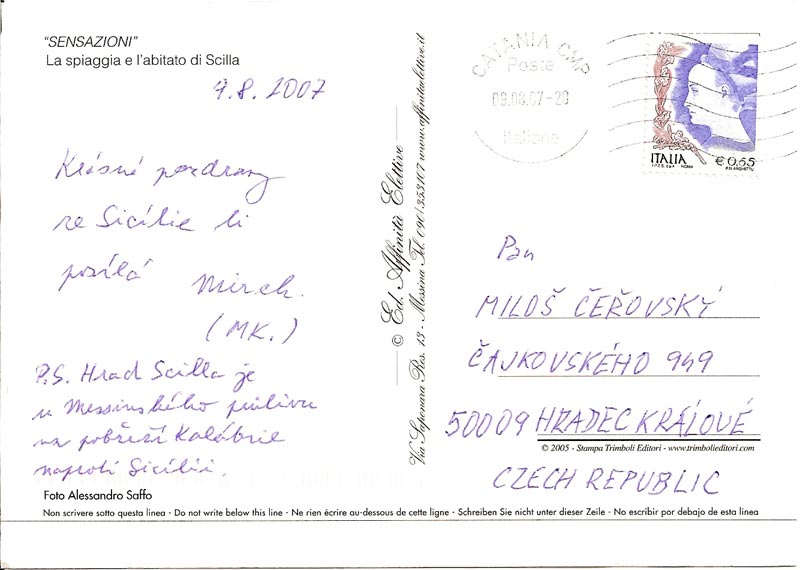 "SENSAZIONI"
La spiaggia e l'abitato di Scilla
9.8.2007
Krásné pozdravy
ze Sicílie ti
posílá Mirek.
(MK.)
P.S. Hrad Scilla je
u Messinského průlivu
na pobřeží Kalábrie
naproti Sicílii.
Foto Alessandro Saffo
© Ed. Affinità Elettive
Via Saponara Res. 13 - Messina Tel. 090/353107 www.affinitaelettive.it
CATANIA CMP
Poste
09.08.07-20
Italiane
ITALIA
€0,65
I.P.Z.S. S.p.A. ROMA
Pan
MILOŠ ČEŘOVSKÝ
ČAJKOVSKÉHO 949
50009 HRADEC KRÁLOVÉ
© 2005 - Stampa Trimboli Editori - www.trimbolieditori.com
CZECH REPUBLIC
Non scrivere sotto questa linea - Do not write below this line - Ne rien écrire au-dessous de cette ligne - Schreiben Sie nicht unter dieser Zeile - No escribir por debajo de esta linea